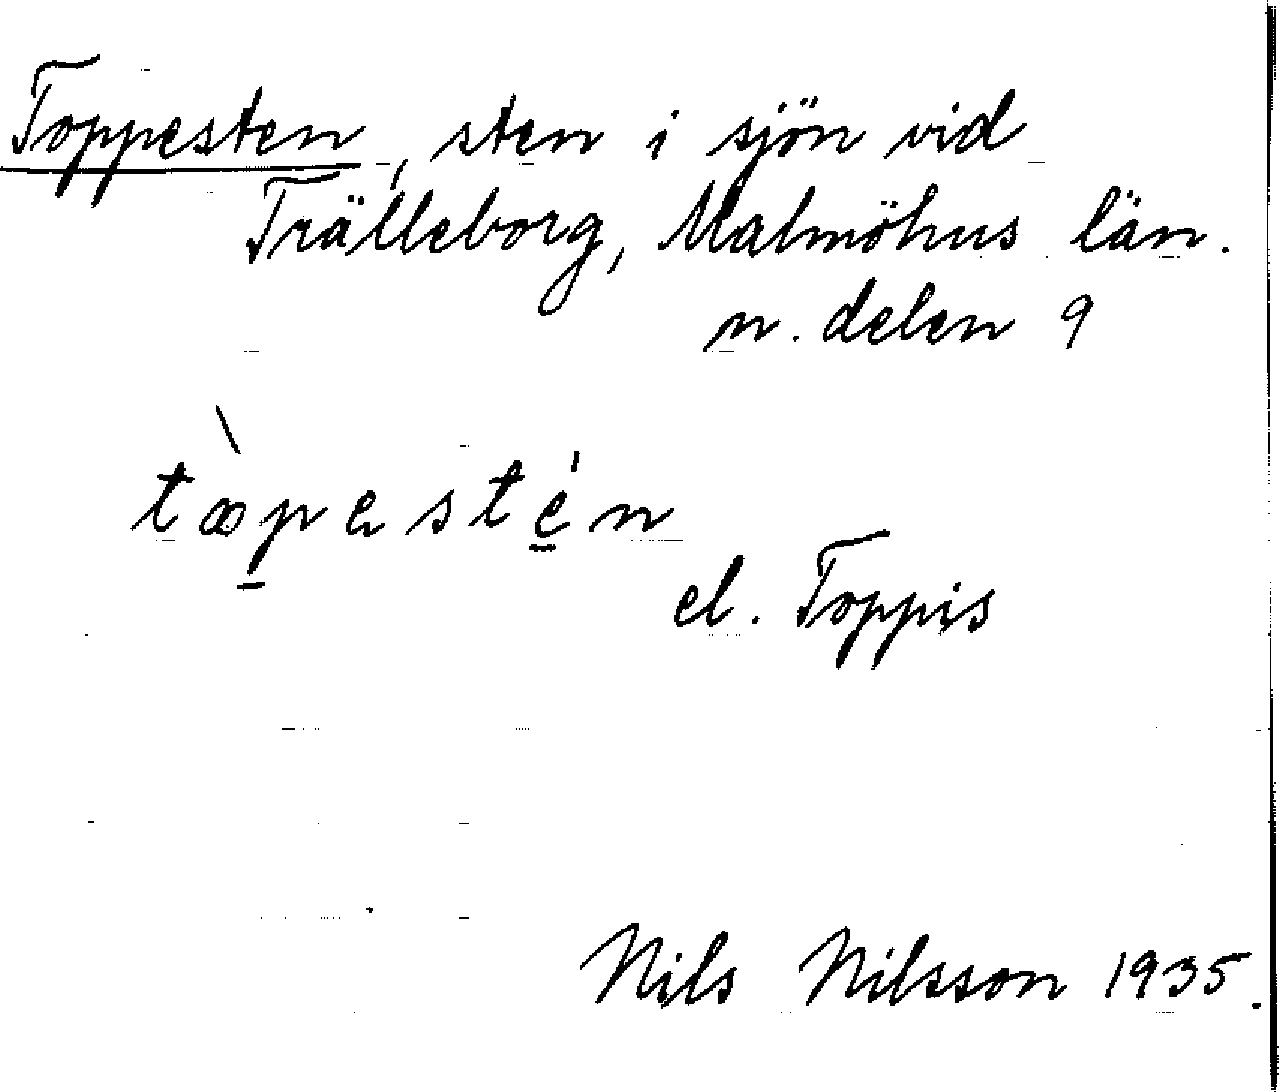 Toppesten, sten i sjön vid
Trälleborg, Malmöhus län.
n. delen 9
tɷ̀pestén
el. Toppis
Nils Nilsson 1935.